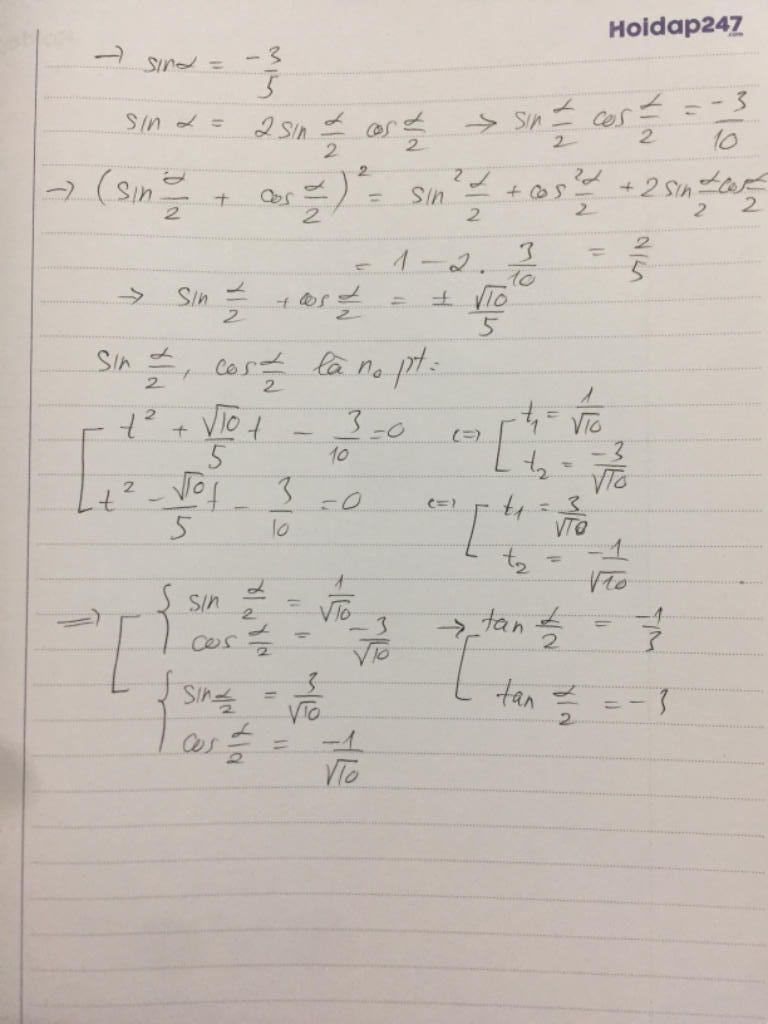 Hoidap247
.com
→ sinα = -3/5
sin α = 2 sin α/2 cos α/2 → sin α/2 cos α/2 = -3/10
→ (sin α/2 + cos α/2)² = sin² α/2 + cos² α/2 + 2 sin α/2 cos α/2
= 1 - 2 . 3/10 = 2/5
→ sin α/2 + cos α/2 = ± √10/5
Sin α/2, cos α/2 là n₀ pt:
[ t² + √10/5 t - 3/10 = 0 <=> [ t₁ = 1/√10
t₂ = -3/√10
t² - √10/5 t - 3/10 = 0 <=> [ t₁ = 3/√10
t₂ = -1/√10
=> [ { sin α/2 = 1/√10
cos α/2 = -3/√10 → [ tan α/2 = -1/3
{ sin α/2 = 3/√10 tan α/2 = -3
cos α/2 = -1/√10